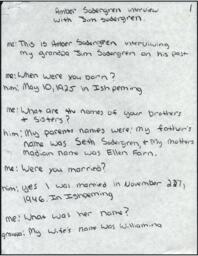 1
Amber Sodergren interview
with Jim Sodergren.
me: This is Amber Sodergren interviewing
my grandpa Jim Sodergren on his past
me: When were you born?
him: May 10, 1925 in Ishpeming
me: What are the names of your brothers
+ Sisters?
him: My parents names were; my father's
name was Seth Sodergren, + My mothers
madian name was Ellen Farn.
me: Were you married?
him: yes I was married in November 27,
1946. In Ishpeming
me: What was her name?
grandpa: My wife's name was Williamina